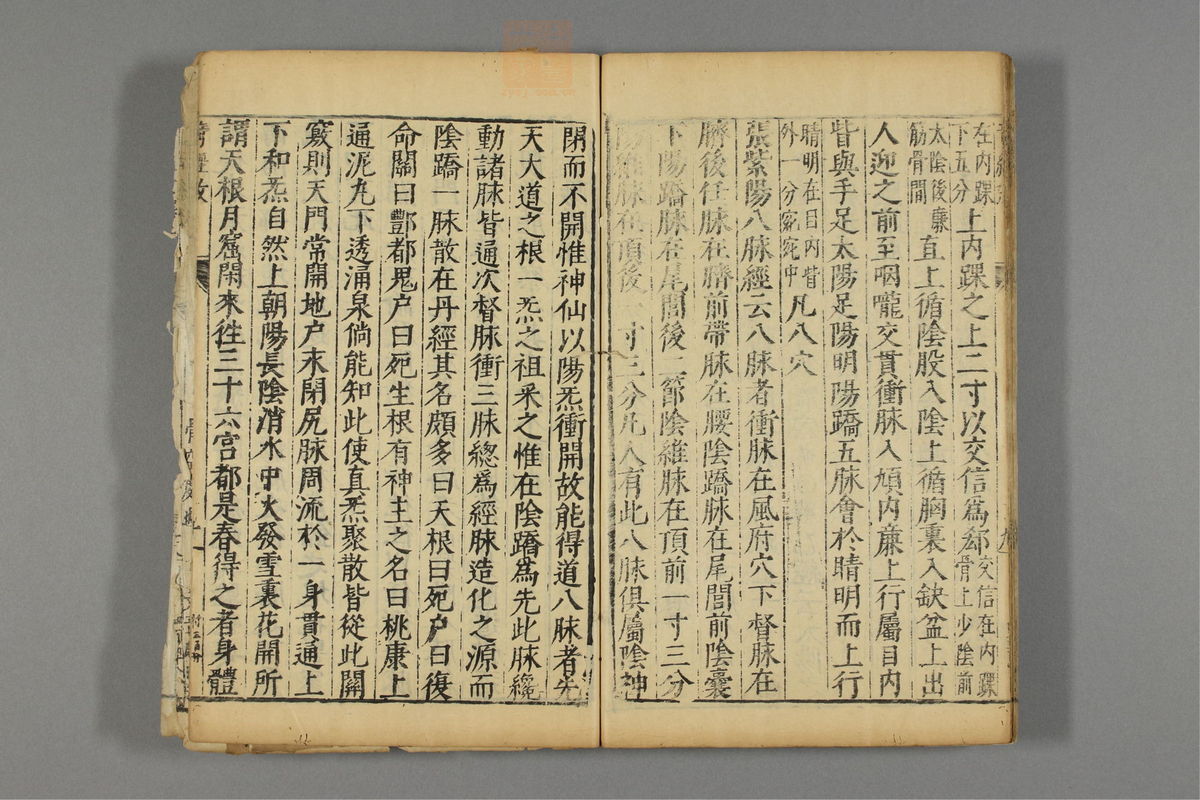 在内踝下五分上内踝之上二寸以交信爲郄交信在内踝骨上少陰前
太陰後廉筋骨間直上循陰股入陰上循胸裏入缺盆上出
人迎之前至咽嚨交貫衝脉入頄内廉上行屬目内
眥與手足太陽足陽明陽蹻五脉會於睛明而上行
睛明在目内眥外一分宛宛中凡八穴
張紫陽八脉經云八脉者衝脉在風府穴下督脉在
臍後任脉在臍前帶脉在腰陰蹻脉在尾閭前陰囊
下陽蹻脉在尾閭後二節陰維脉在頂前一寸三分
陽維脉在頂後一寸三分凡人有此八脉俱屬陰神
閉而不開惟神仙以陽炁衝開故能得道八脉者先
天大道之根一炁之祖采之惟在陰蹻爲先此脉纔
動諸脉皆通次督脉衝三脉緫爲經脉造化之源而
陰蹻一脉散在丹經其名頗多曰天根曰死户曰復
命關曰酆都鬼户曰死生根有神主之名曰桃康上
通泥丸下透涌泉倘能知此使真炁聚散皆從此關
竅則天門常開地户末閉尻脉周流於一身貫通上
下和炁自然上朝陽長陰消水中火發雪裏花開所
謂天根月窟閑來徃三十六宫都是春得之者身體